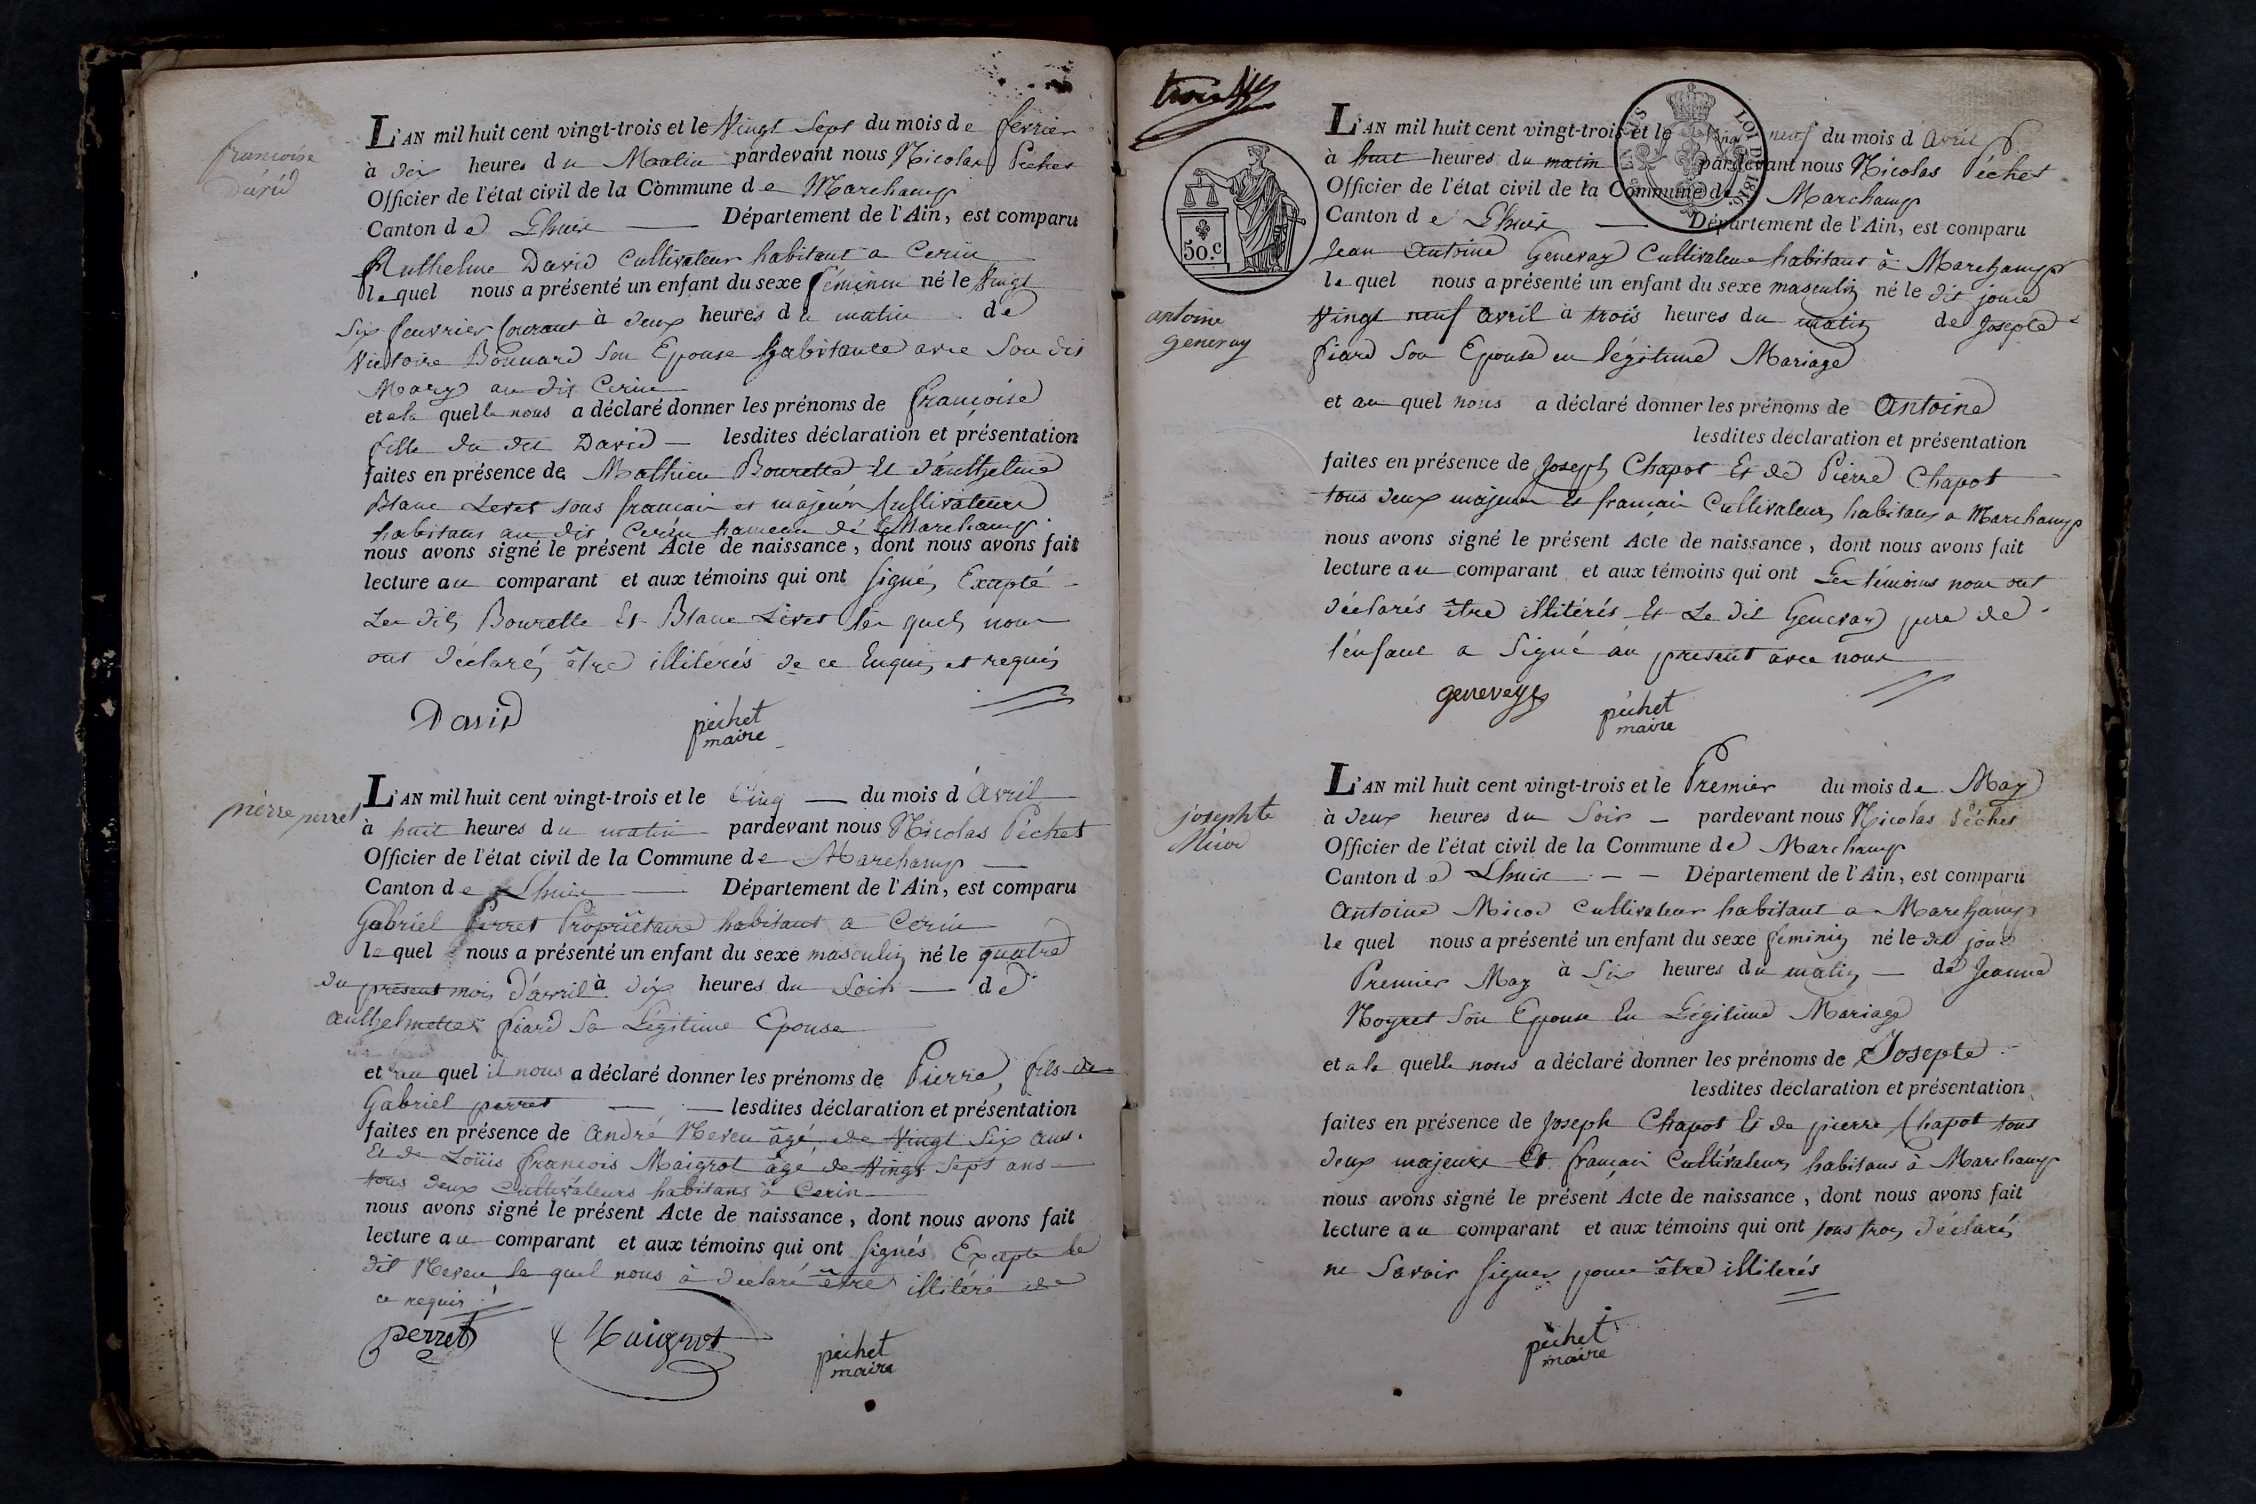 françoise
David
L'AN mil huit cent vingt-trois et le Vingt Sept du mois de fevrier
à dix heures du Matin pardevant nous Nicolas Péchet
Officier de l'état civil de la Commune de Marchamp
Canton de Lhuix Département de l'Ain, est comparu
Anthelme David Cultivateur habitant a Cerin
le quel nous a présenté un enfant du sexe féminin né le Vingt
Six feuvrier Courant à deux heures du matin de
Victoire Bonnard Son Epouse habitante avec Son dit
Mary au dit Cerin
et a la quelle nous a déclaré donner les prénoms de françoise
fille du dit David lesdites déclaration et présentation
faites en présence de Mathieu Bourette Et d'anthelme
Blanc Levet tous français et majeurs Cultivateurs
habitans au dit Cerin hameau de Marchamp
nous avons signé le présent Acte de naissance, dont nous avons fait
lecture au comparant et aux témoins qui ont signé, Exapté
Les dits Bourette Et Blanc Livet les quels nous
ont déclarés être illitérés de ce Enquis et requis
David
péchet
maire
pierre perret
L'AN mil huit cent vingt-trois et le Cinq du mois d'Avril
à huit heures du matin pardevant nous Nicolas Péchet
Officier de l'état civil de la Commune de Marchamp
Canton de Lhuix Département de l'Ain, est comparu
Gabriel Perret Propriétaire habitant a Cerin
le quel nous a présenté un enfant du sexe masculin né le quatre
du présent mois d'avril à dix heures du Soir de
anthelmette piard Sa Légitime Epouse
et au quel il nous a déclaré donner les prénoms de Pierre, fils de
Gabriel perret lesdites déclaration et présentation
faites en présence de André Neveu âgé de Vingt Six ans.
Et de Loüis François Maigrot âgé de Vingt Sept ans
tous deux Cultivateurs habitans à Cerin
nous avons signé le présent Acte de naissance, dont nous avons fait
lecture au comparant et aux témoins qui ont signés Exapte le
dit Neveu le quel nous à declaré être illitéré de
ce requis
perret
Maigrot
péchet
maire
trois
LOI DE 1816
50.C
antoine
genevay
L'AN mil huit cent vingt-trois et le Vingt neuf du mois d'Avril
à huit heures du matin pardevant nous Nicolas Péchet
Officier de l'état civil de la Commune de Marchamp
Canton de Lhuix Département de l'Ain, est comparu
Jean Antoine Genevay Cultivateur habitant à Marchamp
le quel nous a présenté un enfant du sexe masculin né le dit jour
Vingt neuf Avril à trois heures du matin de Josepte
piard Son Epouse en légitime Mariage
et au quel nous a déclaré donner les prénoms de Antoine
lesdites déclaration et présentation
faites en présence de Joseph Chapot Et de Pierre Chapot
tous deux majeurs Et français Cultivateurs habitans a Marchamp
nous avons signé le présent Acte de naissance, dont nous avons fait
lecture au comparant et aux témoins qui ont Les témoins nous ont
déclarés être illitérés Et Le dit Genevay pere de
l'enfant a Signé au present avec nous
genevay
péchet
maire
josephte
Micod
L'AN mil huit cent vingt-trois et le Premier du mois de May
à deux heures du Soir pardevant nous Nicolas Péchet
Officier de l'état civil de la Commune de Marchamp
Canton de Lhuix Département de l'Ain, est comparu
Antoine Micod Cultivateur habitant a Marchamp
le quel nous a présenté un enfant du sexe feminin né le dit jour
Premier May à Six heures du matin de Jeanne
Noyret Son Epouse En Légitime Mariage
et a la quelle nous a déclaré donner les prénoms de Josepte
lesdites déclaration et présentation
faites en présence de Joseph Chapot Et de pierre Chapot tous
deux majeurs Et français Cultivateurs habitans à Marchamp
nous avons signé le présent Acte de naissance, dont nous avons fait
lecture au comparant et aux témoins qui ont tous trois déclarés
ne Savoir signer pour être illitérés
péchet
maire